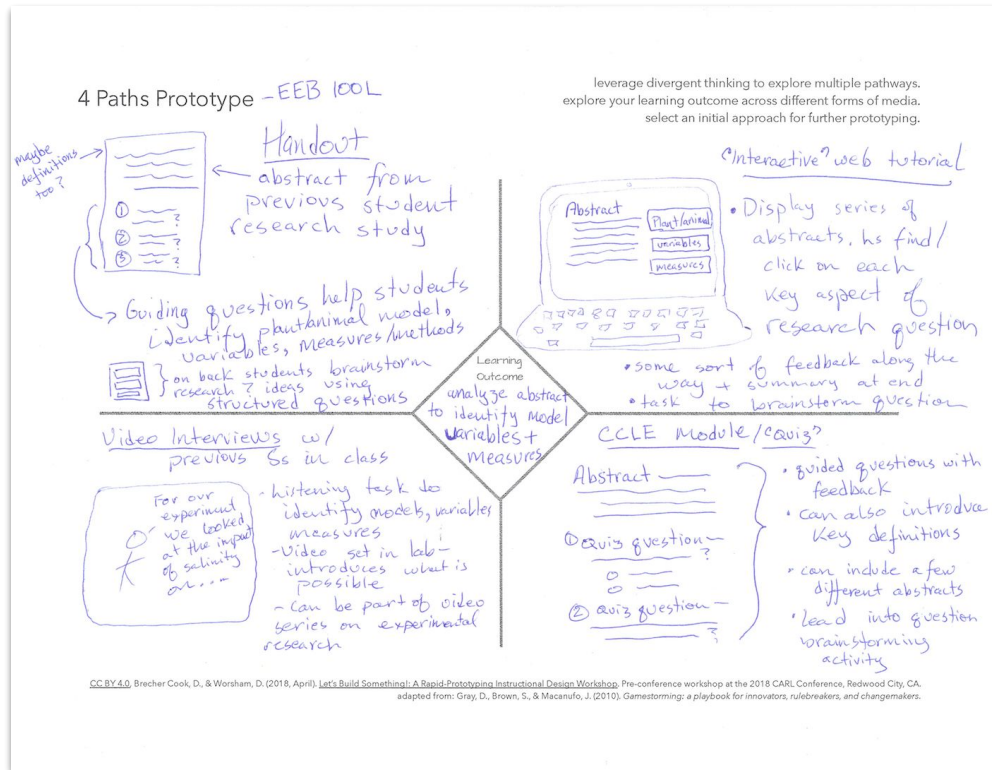 4 Paths Prototype – EEB 100L
leverage divergent thinking to explore multiple pathways.
explore your learning outcome across different forms of media.
select an initial approach for further prototyping.
maybe
definitions
too?
Handout
abstract from
previous student
research study
①
?
②
?
③
?
Guiding questions help students
identify plant/animal model,
variables, measures/methods
on back students brainstorm
research ? ideas using
structured questions
"Interactive" web tutorial
Abstract
Plant/animal
variables
measures
• Display series of
abstracts, hs find/
click on each
key aspect of
research question
• some sort of feedback along the
way + summary at end
• task to brainstorm question
Learning
Outcome
analyze abstract
to identify model
variables +
measures
Video Interviews w/
previous Ss in class
For our
experiment
we looked
at the impact
of salinity
on....
- Listening task to
identify models, variables
measures
- Video set in lab –
introduces what is
possible
- can be part of video
series on experimental
research
CCLE Module/"Quiz"
Abstract
① Quiz question –
?
② Quiz question –
?
• guided questions with
feedback
• can also introduce
key definitions
• can include a few
different abstracts
• lead into question
brainstorming
activity
CC BY 4.0, Brecher Cook, D., & Worsham, D. (2018, April). Let's Build Something!: A Rapid-Prototyping Instructional Design Workshop. Pre-conference workshop at the 2018 CARL Conference, Redwood City, CA.
adapted from: Gray, D., Brown, S., & Macanufo, J. (2010). Gamestorming: a playbook for innovators, rulebreakers, and changemakers.